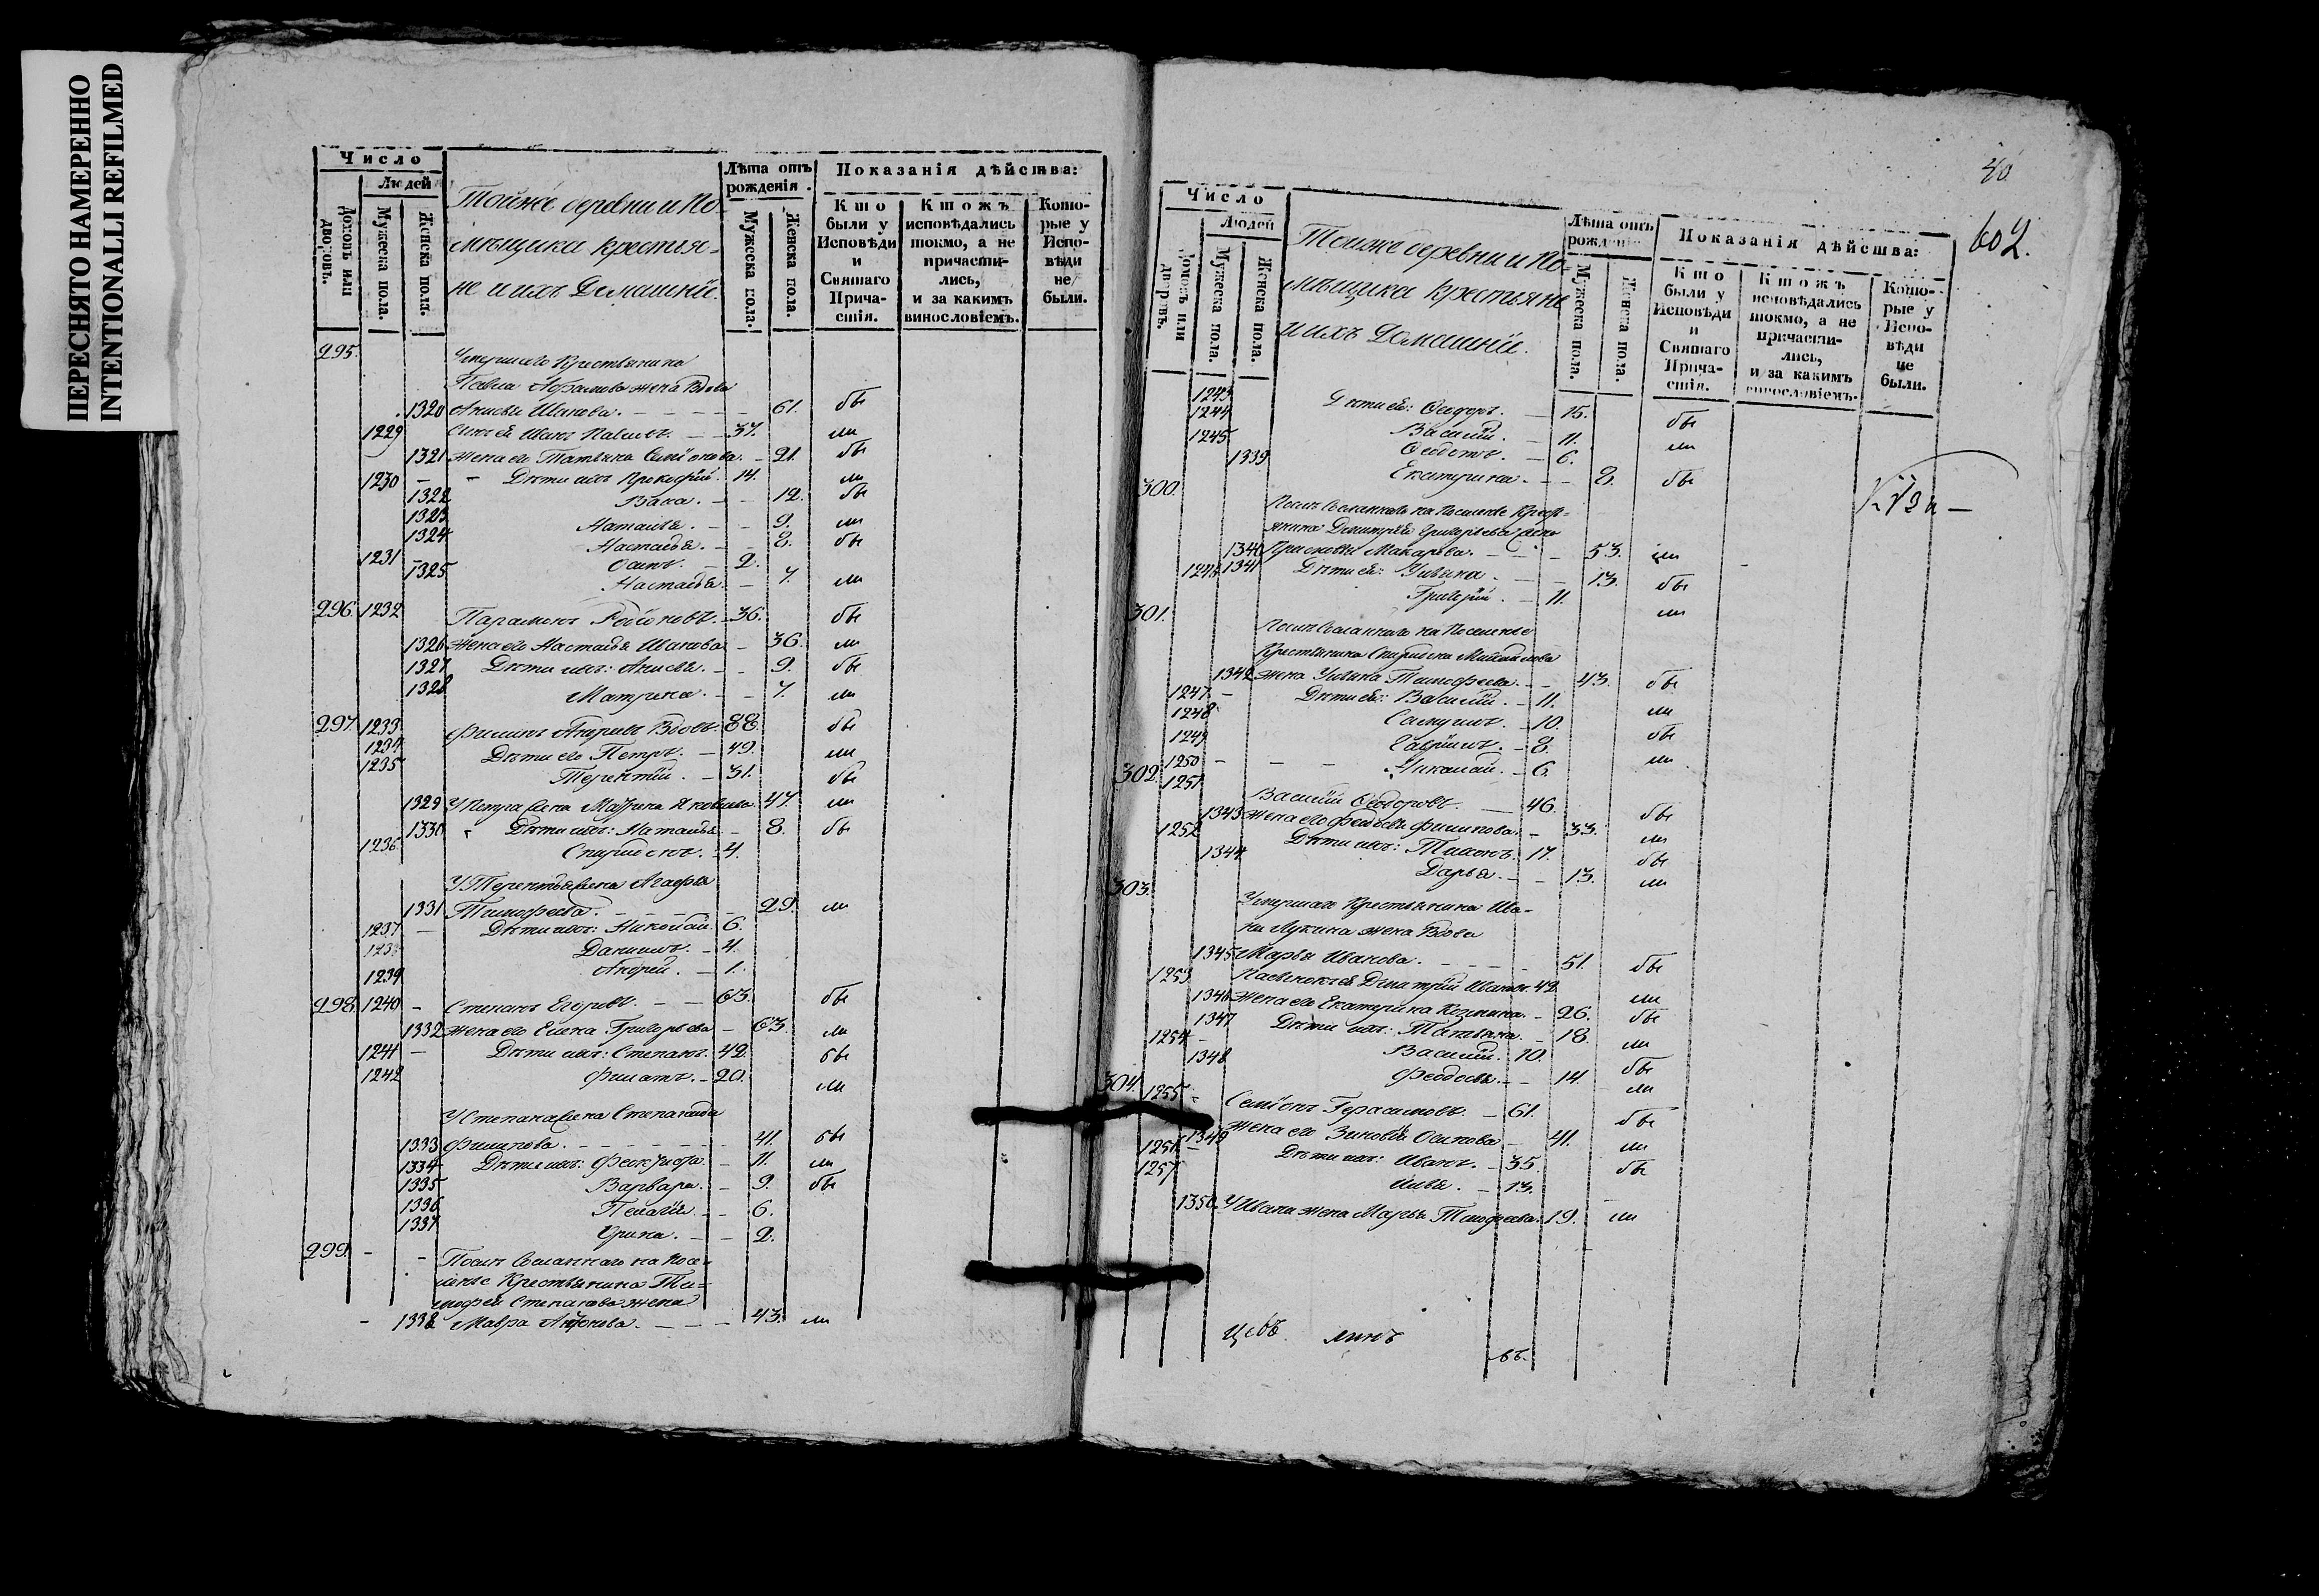 ПЕРЕСНЯТО НАМЕРЕННО
INTENTIONALLI REFILMED
Число
Людей
Домовъ или дворовъ.
Мужеска пола.
Женска пола.
Тойже деревни и по-
мѣщика крестья-
не и ихъ Домашнiи.
Лѣта отъ рожденiя.
Мужеска пола.
Женска пола.
Показанiя дѣйства:
Кто были у Исповѣди и Святаго Причастiя.
Ктожъ исповѣдались токмо, а не причастились, и за какимъ винословiемъ.
Которые у Исповѣди не были.
295. Умершаго Крестьянина
Павла Абрамова жена вдова
1320 Анисья Иванова. 61. бы
1229 Сынъ ея Иванъ Павловъ. 37. ли
1321 жена его Татьяна Семiонова. 21. бы
1230 Дѣти ихъ Прокофiй. 14. ли
1322 12. бы
1323 Наталья. 9. ли
1324 Настасья. 8. бы
1231 Осипъ. 2.
1325 Настасья. 7. ли
296. 1232 Парамонъ Родiоновъ. 36. бы
1326 жена его Настасья Иванова 36. ли
1327 Дѣти ихъ: Анисья. 9. бы
1328 Матрена. 7. ли
297. 1233 Филипъ Андреевъ Вдовъ. 88. бы
1234 Дѣти его Петръ. 49. ли
1235 Терентiй. 31. бы
1329 У Петра жена Яковлева. 47. ли
1330 Дѣти ихъ: Наталья. 8. бы
1236 Спиридонъ. 4.
У Терентья жена Агафья
1331 Тимофеева. 29. ли
1237 Дѣти ихъ: Николай. 6.
1238 Данилъ. 4.
1239 Андрей. 1.
298. 1240 Степанъ Егоровъ. 63. бы
1332 жена его Елена Григорьева 63. ли
1241 Дѣти ихъ: Степанъ. 42. бы
1242 Филатъ. 20. ли
У Степана жена Степанида
1333 Филипова. 41. бы
1334 Дѣти ихъ: 11. ли
1335 Варвара. 9. бы
1336 Пелагiя. 6.
1337 Ирина. 2.
299. Посли Сосланнаго на посе-
ленье Крестьянина Ти-
мофея Степанова жена
1338 Мавра 43. ли
40
602.
Число
Людей
Домовъ или дворовъ.
Мужеска пола.
Женска пола.
Тойже деревни и по-
мѣщика крестьяне
и ихъ Домашнiи.
Лѣта отъ рожденiя
Мужеска пола.
Женска пола.
Показанiя дѣйства:
Кто были у Исповѣди и Святаго Причастiя.
Ктожъ исповѣдались токмо, а не причастились, и за какимъ винословiемъ.
Которые у Исповѣди не были.
1243 Дѣти ея: Сидоръ. 15. бы
1244 Василiй. 11. ли
1245 Ѳедотъ. 6.
1339 Екатерина. 8. бы
300. Посли Сосланнаго на Поселенье Кресть-
янина Димитрiя Григорьева жена
1340 Прасковья Макарова. 53. ли
1341 Дѣти ея: Ульяна. 13. бы
1246 Григорiй. 11. ли
301. Посли Сосланнаго на Поселенье
Крестьянина Спиридона Михайлова
1342 жена Ульяна Тимофеева. 43. бы
1247 Дѣти ея: Василiй. 11. ли
1248 Самуилъ. 10. бы
1249 Гаврiилъ. 8. ли
1250 Николай. 6.
302. 1251 Василiй Ѳедоровъ. 46. бы
1343 жена его Филипова. 33. ли
1252 Дѣти ихъ: 17. бы
1344 Дарья. 13. ли
303. Умершаго Крестьянина Ива-
на Лукина жена Вдова
1345 Марья Иванова. 51. бы
1253 Димитрiй Ивановъ. 42. ли
1346 жена его Екатерина Козмина. 26. бы
1347 Дѣти ихъ: Татьяна. 18. ли
1254 Василiй. 10. бы
1348 Феодосья. 14. ли
304. 1255 Семiонъ Герасимовъ. 61. бы
1349 жена его Зиновья Осипова 41. ли
1256 Дѣти ихъ: Иванъ. 35. бы
1257 13.
1350 У Ивана жена Марья Тимофеева. 19. ли